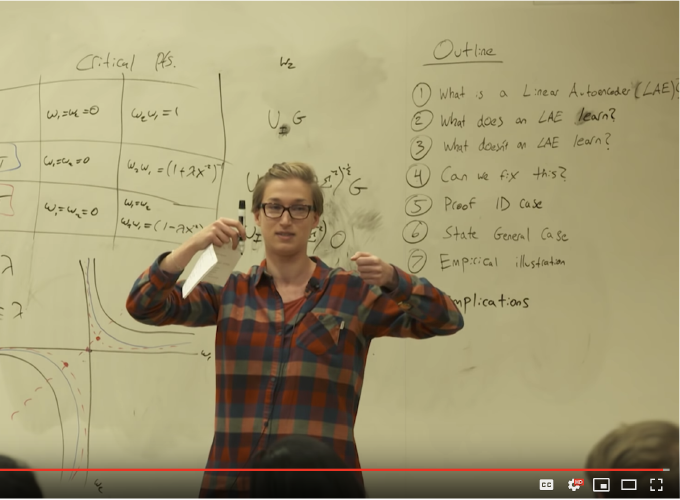 Critical Pts.
w₁=w₂=0
w₂w₁=1
w₁=w₂=0
w₂w₁=(1+λx⁻²)
w₁=w₂=0
w₁=w₂
w₂w₁=(1-λx⁻²)
λ
λ
w₁
w₂
w₂
G
G
Outline
① What is a Linear Autoencoder (LAE)?
② What does an LAE learn?
③ What doesn't an LAE learn?
④ Can we fix this?
⑤ Proof 1D case
⑥ State General Case
⑦ Empirical illustration
mplications
CC
HD